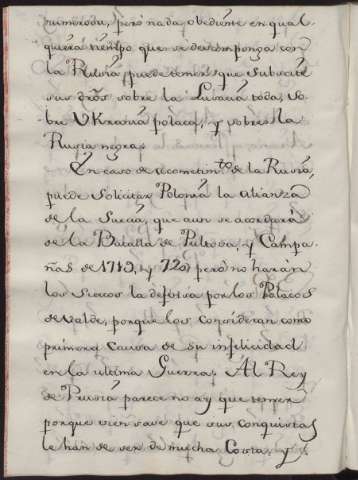 numerosa, pero nada obediente en qual-
quiera tiempo que se descomponga con
la Rusia, puede temer que subscite
sus dros sobre la Lusacia toda, so-
bre UKrania polaca, y sobre la
Rusia negra.
En caso de acometim.to de la Rusia,
puede Solicitar Polonia la alianza
de la Suecia, que aun se acordará
de la Batalla de Pultova, y Campa-
ñas de 1719, y 720, pero no harán
los Suecos la defensa por los Polacos
de valde, porque los consideran como
primera causa de su infelicidad
en la ultima Guerra. Al Rey
de Prusia parece no ay que temer
porque vien save que sus conquistas
le han de ser de mucha Costa, y